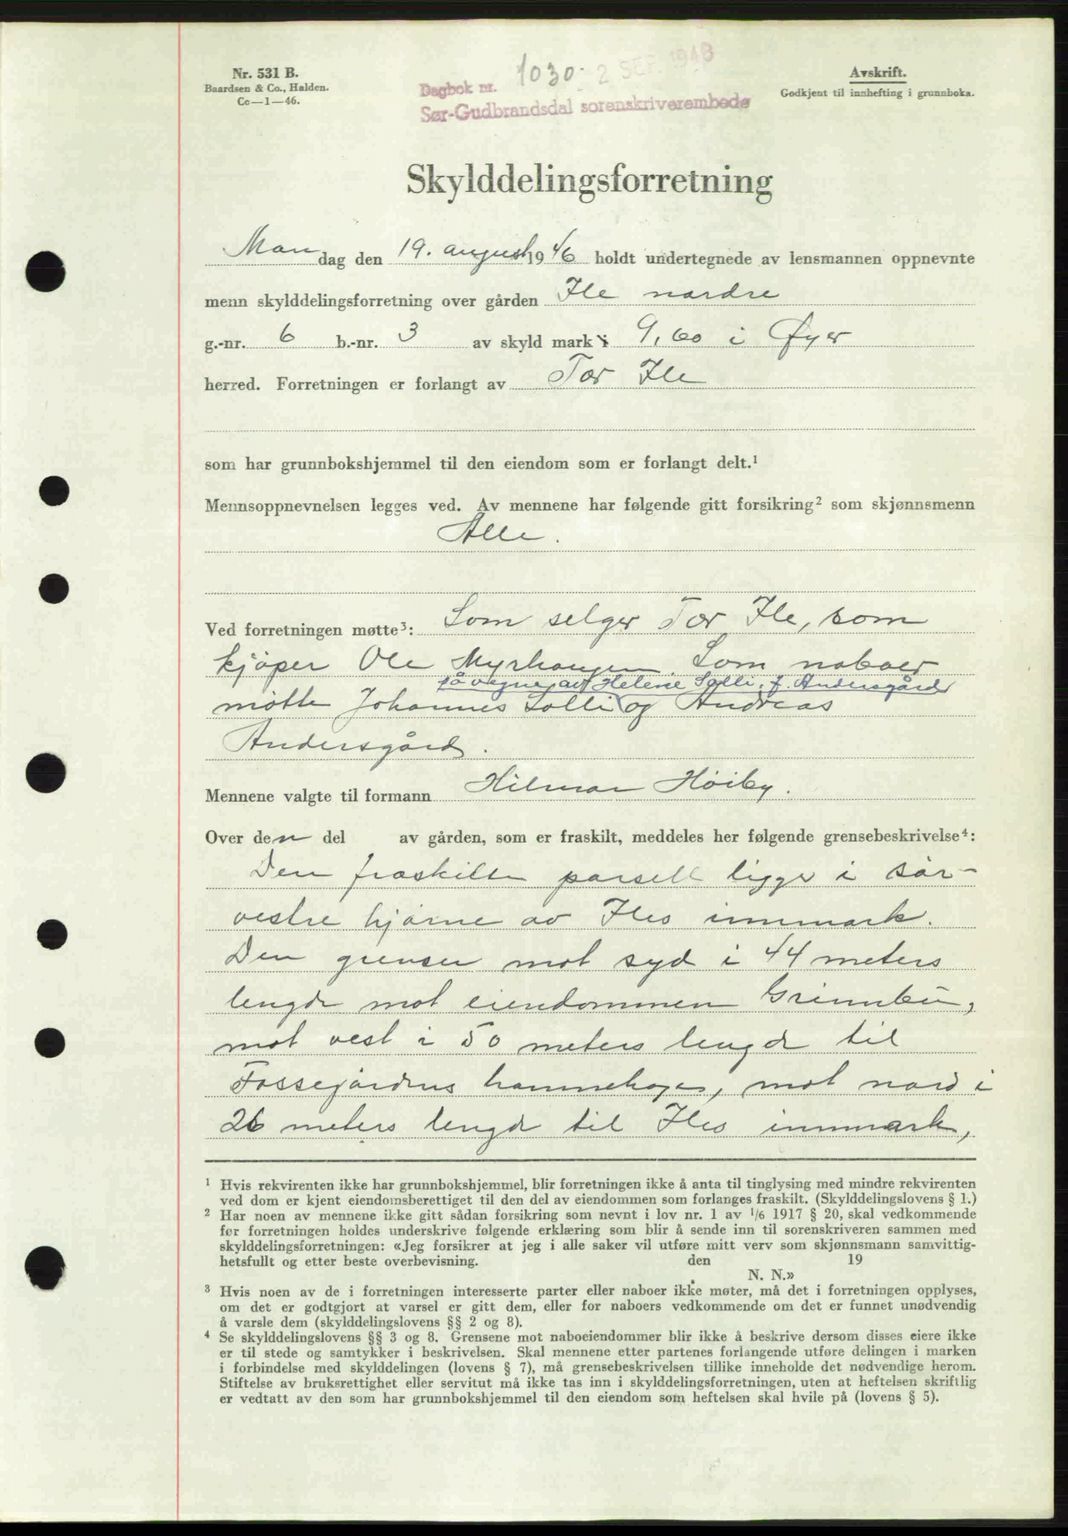 Nr. 531 B.
Baardsen & Co., Halden.
Cc—1—46.
Dagbok nr. 1030 - 2 SEP. 1946
Sør-Gudbrandsdal sorenskriverembede
Avskrift.
Godkjent til innhefting i grunnboka.
Skylddelingsforretning
Man dag den 19. august 1946 holdt undertegnede av lensmannen oppnevnte
menn skylddelingsforretning over gården Ile nordre
g.-nr. 6 b.-nr. 3 av skyld mark 9,60 i Øyer
herred. Forretningen er forlangt av Tor Ile
som har grunnbokshjemmel til den eiendom som er forlangt delt.¹
Mennsoppnevnelsen legges ved. Av mennene har følgende gitt forsikring² som skjønnsmenn
Alle.
Ved forretningen møtte³: Som selger Tor Ile, som
kjøper Ole Myrhaugen. Som naboer
på vegne av Helene Solli, f. Andersgård
møtte Johannes Solli og Andreas
Andersgård.
Mennene valgte til formann Hilmar Höiby.
Over den del av gården, som er fraskilt, meddeles her følgende grensebeskrivelse⁴:
Den fraskilte parsell ligger i sør-
vestre hjørne av Iles innmark.
Den grenser mot syd i 44 meters
lengde mot eiendommen Grinnbu,
mot vest i 50 meters lengde til
Fossegårdens hamnehage, mot nord i
26 meters lengde til Iles innmark,
¹ Hvis rekvirenten ikke har grunnbokshjemmel, blir forretningen ikke å anta til tinglysing med mindre rekvirenten
ved dom er kjent eiendomsberettiget til den del av eiendommen som forlanges fraskilt. (Skylddelingslovens § 1.)
² Har noen av mennene ikke gitt sådan forsikring som nevnt i lov nr. 1 av 1/6 1917 § 20, skal vedkommende
før forretningen holdes underskrive følgende erklæring som blir å sende inn til sorenskriveren sammen med
skylddelingsforretningen: «Jeg forsikrer at jeg i alle saker vil utføre mitt verv som skjønnsmann samvittig-
hetsfullt og etter beste overbevisning. den 19
N. N.»
³ Hvis noen av de i forretningen interesserte parter eller naboer ikke møter, må det i forretningen opplyses,
om det er godtgjort at varsel er gitt dem, eller for naboers vedkommende om det er funnet unødvendig
å varsle dem (skylddelingslovens §§ 2 og 8).
⁴ Se skylddelingslovens §§ 3 og 8. Grensene mot naboeiendommer blir ikke å beskrive dersom disses eiere ikke
er til stede og samtykker i beskrivelsen. Skal mennene etter partenes forlangende utføre delingen i marken
i forbindelse med skylddelingen (lovens § 7), må grensebeskrivelsen tillike inneholde det nødvendige herom.
Stiftelse av bruksrettighet eller servitut må ikke tas inn i skylddelingsforretningen, uten at heftelsen skriftlig
er vedtatt av den som har grunnbokshjemmel til den eiendom som heftelsen skal hvile på (lovens § 5).